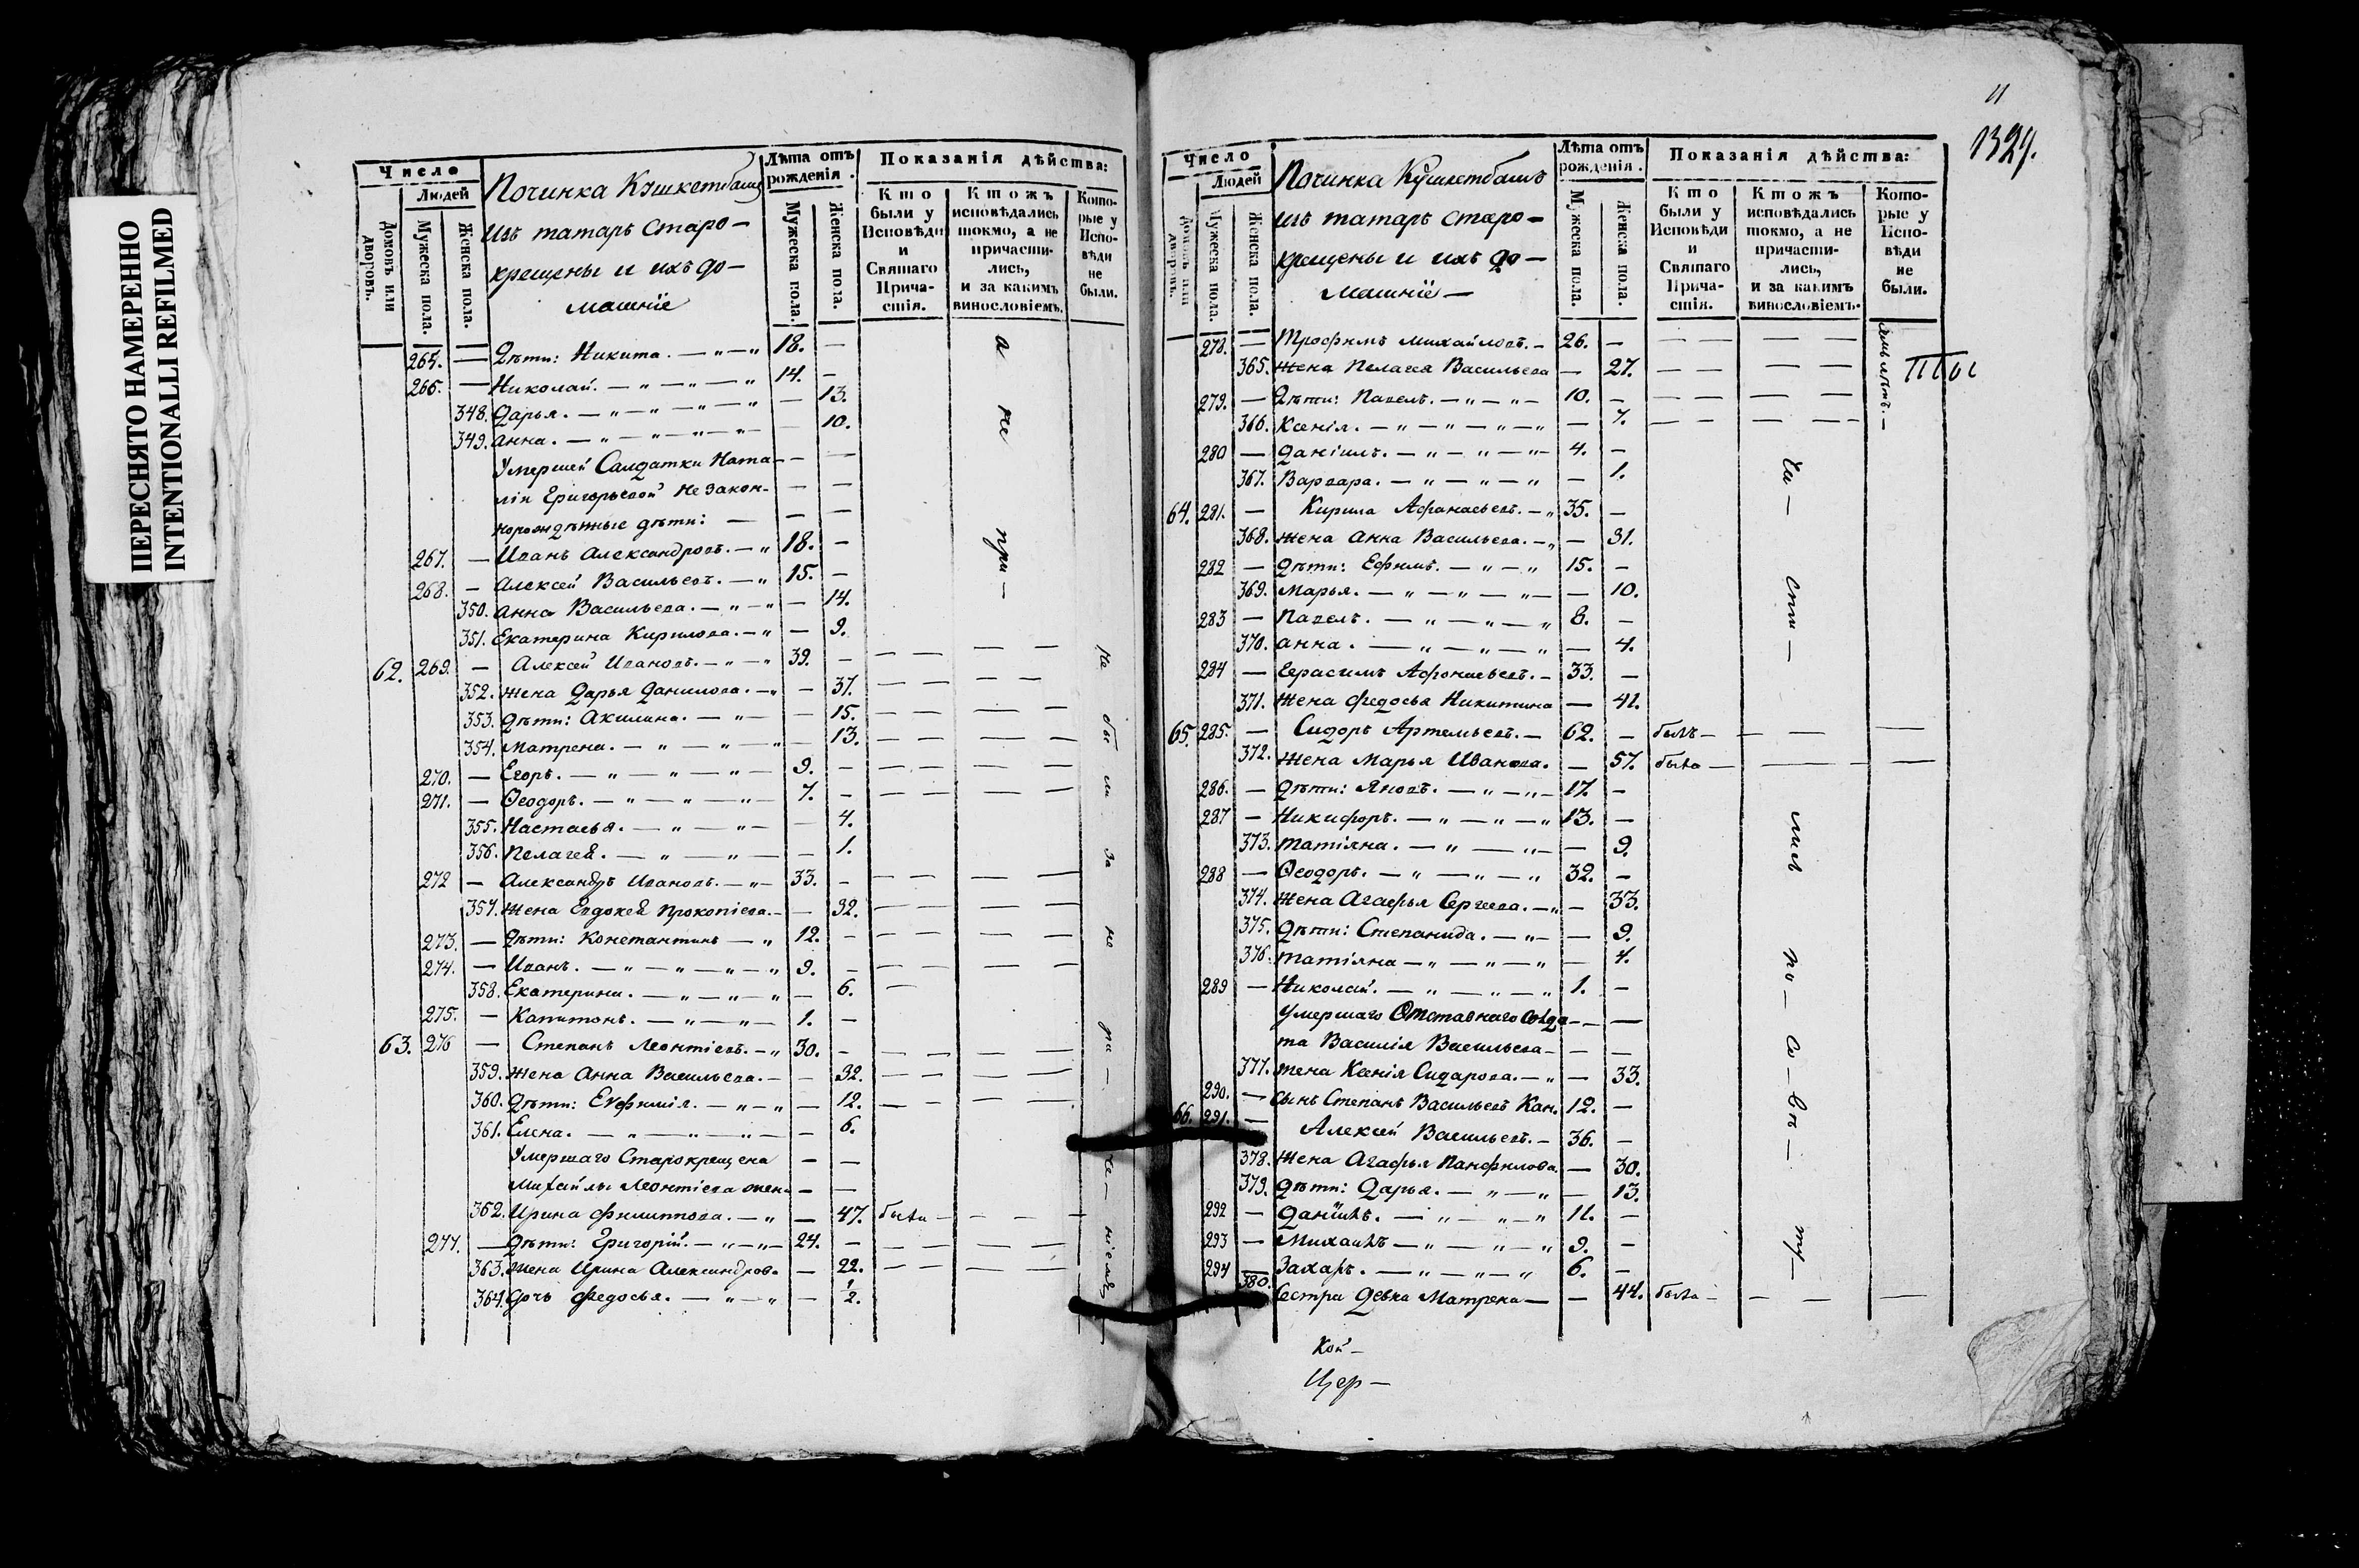 ПЕРЕСНЯТО НАМЕРЕННО
INTENTIONALLI REFILMED
Число
Людей
Домовъ или дворовъ.
Мужеска пола.
Женска пола.
Починка Кушкетбашъ
изъ татаръ старо-
крещены и ихъ до-
машніе
Лѣта отъ рожденія.
Мужеска пола.
Женска пола.
Показанія дѣйства:
Кто были у Исповѣди и Святаго Прича-стія.
Ктожъ исповѣдались токмо, а не причасти-лись, и за какимъ винословіемъ.
Кото-рые у Испо-вѣди не были.
265. — Дѣти: Никита. — „ — „ 18. —
266. — Николай. — „ — „ — „ 14. —
348. Дарья. — „ — „ — „ — „ — 13.
349. Анна. — „ — „ — „ — „ — 10.
Умершей Салдатки Ната- — —
ліи Григорьевой незакон- — —
норожденные дѣти: — — —
267. — Иванъ Александровъ. — „ 18. —
268. — Алексей Васильевъ. — „ 15. —
350. Анна Васильева. — „ — „ — 14.
351. Екатерина Кирилова. — „ — 9.
62. 269. — Алексей Ивановъ. — „ — „ 39. — — — — —
352. Жена Дарья Данилова. — „ — 37. — — — —
353. Дѣти: Акилина. — „ — — 15. — — — —
354. Матрена. — „ — „ — „ — 13. — — — —
270. — Егоръ. — „ — „ — „ — 9. — — — — —
271. — Ѳеодоръ. — „ — „ — „ — 7. — — — — —
355. Настасья. — „ — „ — — 4.
356. Пелагея. — „ — „ — — 1.
272 — Александръ Ивановъ. — „ — 33. — — — — —
357. Жена Евдокея Прокопіева. — — 32. — — — —
273. — Дѣти: Константинъ — „ 12. — — — — —
274. — Иванъ. — „ — „ — „ — „ 9. — — — — —
358. Екатерина. — „ — „ — „ — 6. —
275. — Капитонъ. — „ — „ — 1. —
63. 276 — Степанъ Леонтіевъ. — „ 30. — — — — —
359. Жена Анна Васильева. — — 32. — — — —
360. Дѣти: Евфимія. — „ — „ — 12. — — — —
361. Елена. — „ — „ — „ — — 6.
Умершаго Старокрещена — —
Михайлы Леонтіева жен. — —
362. Ирина Филиппова. — „ — 47. была — — — —
277. — Дѣти: Григорій. — „ — „ — 24. — — — — —
363. Жена Ирина Александров. — 22. — — — —
364. Дочь Федосья. — „ — „ — 1/2.
а не при-
не бы ли за не ра- че- ніемъ
11
1329.
Число
Людей
Домовъ или дворовъ.
Мужеска пола.
Женска пола.
Починка Кушкетбашъ
изъ татаръ старо-
крещены и ихъ до-
машніе —
Лѣта отъ рожденія.
Мужеска пола.
Женска пола.
Показанія дѣйства:
Кто были у Исповѣди и Святаго Прича-стія.
Ктожъ исповѣдались токмо, а не причасти-лись, и за какимъ винословіемъ.
Кото-рые у Испо-вѣди не были.
278. — Трофимъ Михайловъ. — 26. — — — — —
365. Жена Пелагея Васильева — 27. — — — —
279. — Дѣти: Павелъ. — „ — „ — 10. — — — — —
366. Ксенія. — „ — „ — „ — „ — — 7. — — — —
280 — Даніилъ. — „ — „ — „ — 4. —
367. Варвара. — „ — „ — „ — 1.
64. 281. — Кирила Афанасьевъ. — „ 35. —
368. Жена Анна Васильева. — „ — 31.
282 — Дѣти: Ефимъ. — „ — „ 15. —
369. Марья. — „ — „ — „ — — 10.
283 — Павелъ. — „ — „ — „ 8. —
370. Анна. — „ — „ — „ — 4.
284 — Герасимъ Афонасьевъ. — 33. —
371. Жена Федосья Никитина — 41.
65. 285. — Сидоръ Артемьевъ. — 62. — былъ — — — —
372. Жена Марья Иванова. — 57. была — — — —
286. — Дѣти: Яковъ. — „ — „ — 17. —
287 — Никифоръ. — „ — „ — „ 13. —
373. Татіяна. — „ — „ — — 9.
288 — Ѳеодоръ. — „ — „ — „ 32. —
374. Жена Агафья Сергеева. — „ — 33.
375. Дѣти: Степанида. — „ — — 9.
376. Татіяна — „ — „ — „ — 4.
289 — Николай. — „ — „ — „ 1. —
Умершаго Отставнаго Солда- — —
та Василія Васильева — — —
377. Жена Ксенія Сидарова. — „ — 33.
290. — Сынъ Степанъ Васильевъ Кан. 12. —
66. 291. — Алексей Васильевъ. — 36. —
378. Жена Агафья Панфилова. — 30.
379. Дѣти: Дарья. — „ — „ — 13.
292 — Даніилъ. — „ — „ — „ 11. —
293 — Михаилъ — „ — „ — „ 9. —
294 — Захаръ. — „ — „ — „ 6. —
380. Сестра девка Матрена — — 44. была — — — —
сти- лися по-
Кой-
Цер-